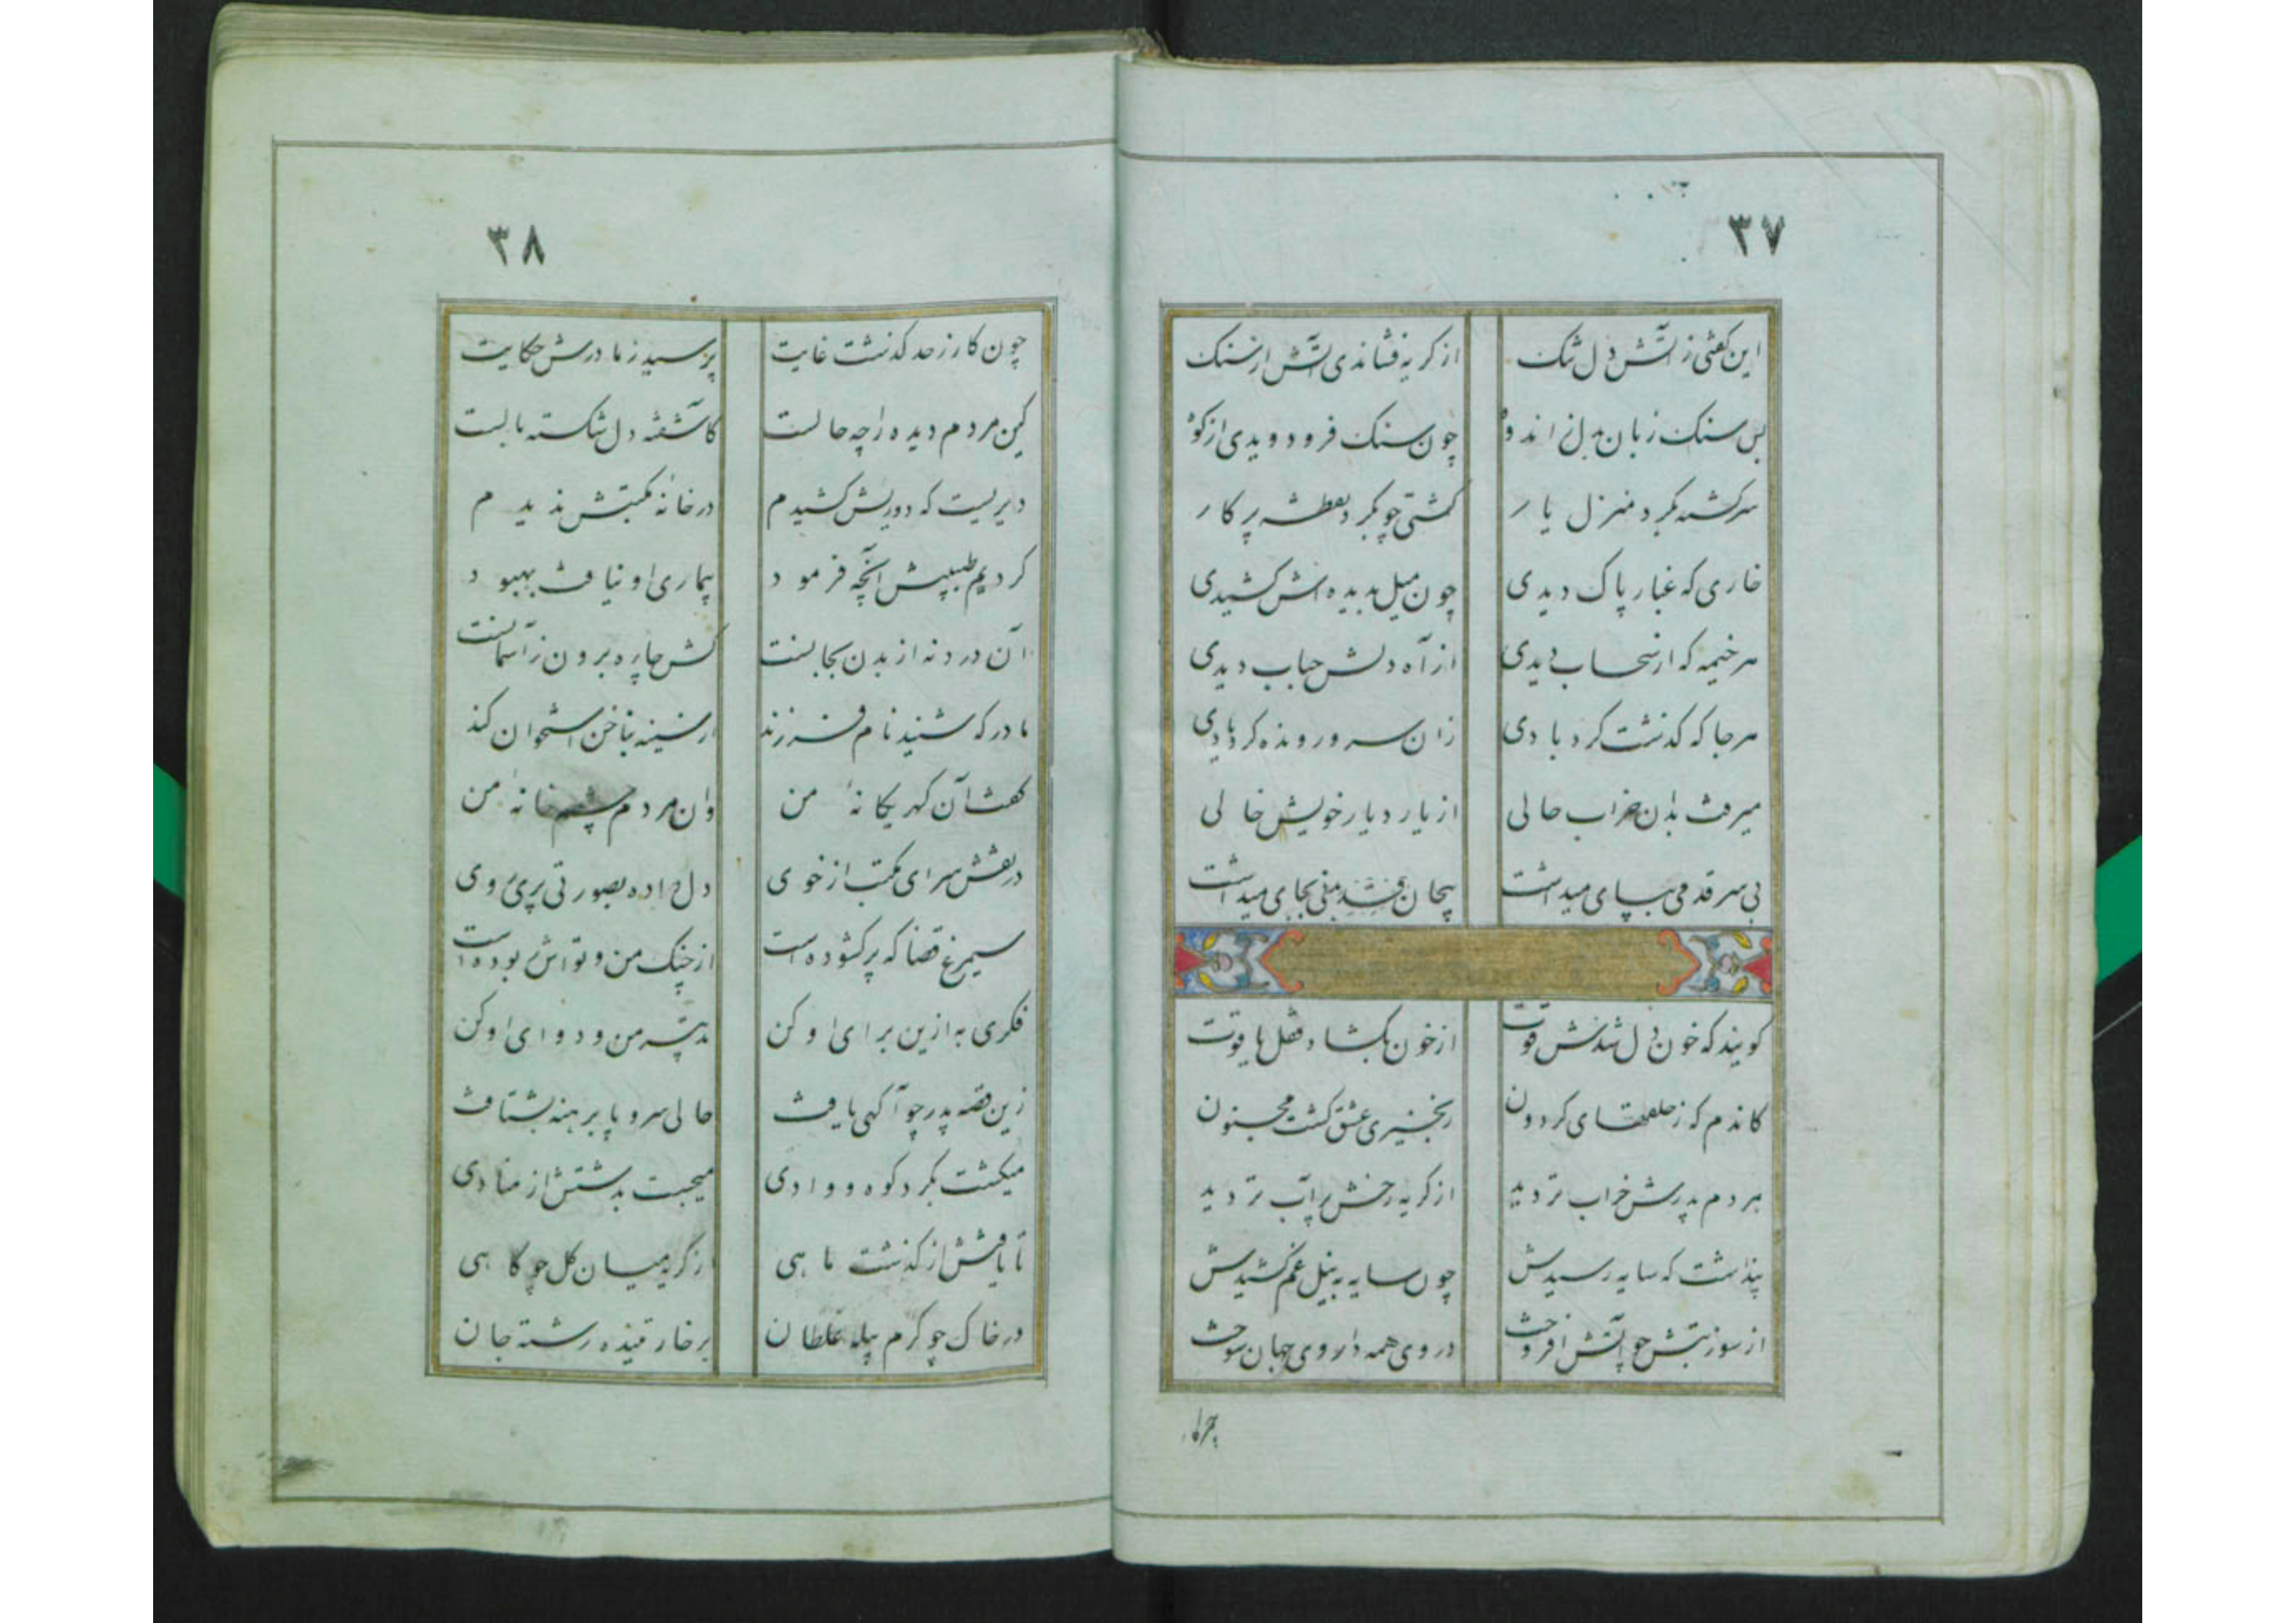 ۳۷
این گفتی ز آتش دل تنک از کریه فشاندی آتش از سنک
بس سنک زبان بدل ز اندوه چون سنک فرو دویدی از کوه
سرکشته بکرد منزل یار کشتی چو بکرد نقطه پرکار
خاری که غبار پاک دیدی چون میل بدیده اش کشیدی
هر خیمه که از سحاب دیدی از آه دلش حباب دیدی
هر جا که کذشت کردبادی زان سرو رونده کرد یادی
میرفت بدان خراب حالی از یار دیار خویش خالی
بی سر قدمی بپای میداشت بیجان بجای میداشت
کویند که خون دل شدش قوت از خون بکشاد قفل یاقوت
کاندم که ز حلقهای کردون زنجیری عشق کشت مجنون
هر دم پدرش خراب تر دید از کریه رخش پر آب تر دید
پنداشت که سایه رسیدش چون سایه به نیل غم کشیدش
از سوز تبش چو آتش افروخت در وی همه داروی جهان سوخت
چون کار
۳۸
چون کار ز حد کذشت غایت پرسید ز مادرش حکایت
کین مردم دیده را چه حالست کاشفته دل شکسته بالست
دیریست که دوریش کشیدم در خانهٔ مکتبش ندیدم
کردیم طبیبش آنچه فرمود بیماری او نیافت بهبود
آن درد نه از بدن بجانست کش چاره برون ز آسمانست
مادر که شنید نام فرزند از سینه بناخن استخوان کند
کفت آن کهر یکانهٔ من وان مردم چشم خانهٔ من
در نقش سرای مکتب از خوی دل داده بصورتی پری روی
سیمرغ قضا که پر کشوده است از چنک من و تواش ربوده است
فکری به ازین برای او کن تدبیر من و دوای او کن
زین قصه پدر چو آکهی یافت حالی سر و پا برهنه بشتافت
میکشت بکرد کوه و وادی میجست بدشتش از منادی
تا یافتش از کذشت ماهی از کریه میان کل چو کاهی
در خاک چو کرم پیله غلطان بر خار تنیده رشته جان